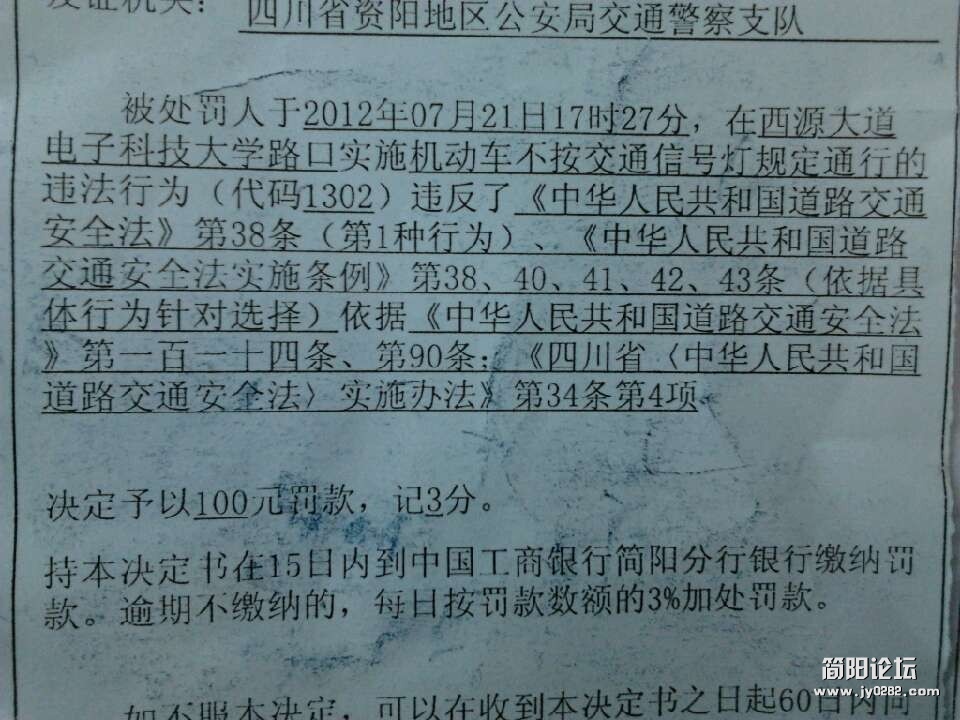 发证机关： 四川省资阳地区公安局交通警察支队
被处罚人于2012年07月21日17时27分，在西源大道
电子科技大学路口实施机动车不按交通信号灯规定通行的
违法行为（代码1302）违反了《中华人民共和国道路交通
安全法》第38条（第1种行为）、《中华人民共和国道路
交通安全法实施条例》第38、40、41、42、43条（依据具
体行为针对选择）依据《中华人民共和国道路交通安全法
》第一百一十四条、第90条；《四川省〈中华人民共和国
道路交通安全法〉实施办法》第34条第4项
决定予以100元罚款，记3分。
持本决定书在15日内到中国工商银行简阳分行银行缴纳罚
款。逾期不缴纳的，每日按罚款数额的3%加处罚款。
如不服本决定，可以在收到本决定书之日起60日内向
简阳论坛
www.jy0282.com